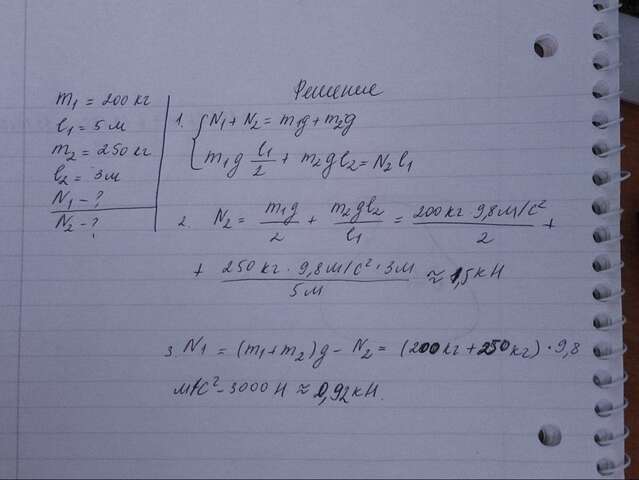 Решение
m₁ = 200 кг
l₁ = 5 м
m₂ = 250 кг
l₂ = 3 м
N₁ - ?
N₂ - ?
1. { N₁ + N₂ = m₁g + m₂g
m₁g l₁/2 + m₂gl₂ = N₂l₁
2. N₂ = m₁g/2 + m₂gl₂/l₁ = 200 кг · 9,8 м/с²/2 +
+ 250 кг · 9,8 м/с² · 3 м/5 м ≈ 1,5 кН
3. N₁ = (m₁ + m₂)g - N₂ = (200 кг + 250 кг) · 9,8
м/с² - 3000 Н ≈ 0,92 кН.